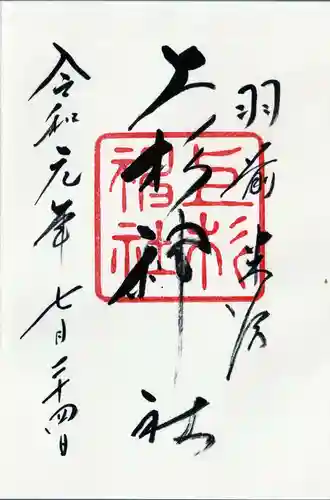 羽前米沢
上杉神社
上杉神社
令和元年七月二十四日